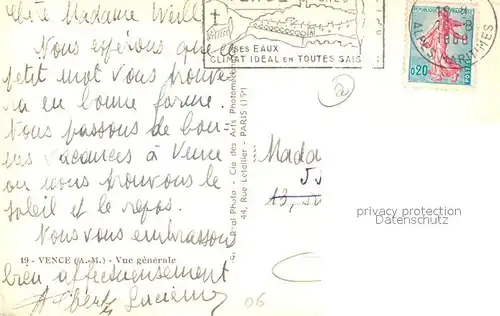 Chère Madame Weill
Nous espérons que ce
petit mot vous trouve-
ra en bonne forme.
Nous passons de bon-
nes vacances à Vence
où nous trouvons le
soleil et le repos.
Nous vous embrassons
19 - VENCE (A.-M.) - Vue générale
bien affectueusement
Lucienne
SES EAUX
CLIMAT IDÉAL EN TOUTES SAIS
Cie des Arts Photomécaniques
44, Rue Letellier - PARIS (15e)
RÉPUBLIQUE FRANÇAISE
0,20
POSTES
ALPES MARITIMES
Mada
13,
privacy protection
Datenschutz
06